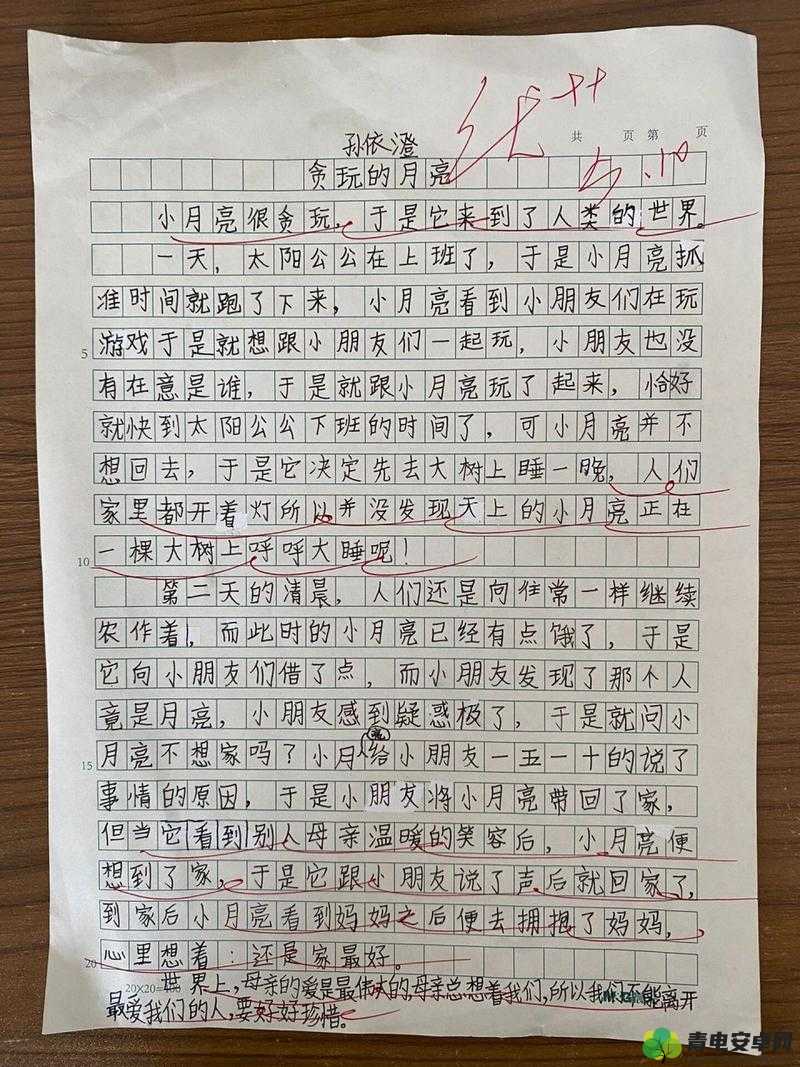 优++
共 页 第 页
5.10
孙依澄
贪玩的月亮
小月亮很贪玩，于是它来到了人类的世界。
一天，太阳公公在上班了，于是小月亮抓
准时间就跑了下来，小月亮看到小朋友们在玩
5 游戏于是就想跟小朋友们一起玩，小朋友也没
有在意是谁，于是就跟小月亮玩了起来，恰好
就快到太阳公公下班的时间了，可小月亮并不
想回去，于是它决定先去大树上睡一晚，人们
家里都开着灯所以并没发现天上的小月亮正在
10 一棵大树上呼呼大睡呢！
第二天的清晨，人们还是向往常一样继续
农作着，而此时的小月亮已经有点饿了，于是
它向小朋友们借了点，而小朋友发现了那个人
竟是月亮，小朋友感到疑惑极了，于是就问小
15 月亮不想家吗？小月亮给小朋友一五一十的说了
事情的原因，于是小朋友将小月亮带回了家，
但当它看到别人母亲温暖的笑容后，小月亮便
想到了家，于是它跟小朋友说了声后就回家了，
到家后小月亮看到妈妈之后便去拥抱了妈妈，
20 心里想着：还是家最好。
20×20=
世界上，母亲的爱是最伟大的，母亲总想着我们，所以我们不能离开
最爱我们的人，要好好珍惜。
青电安卓网